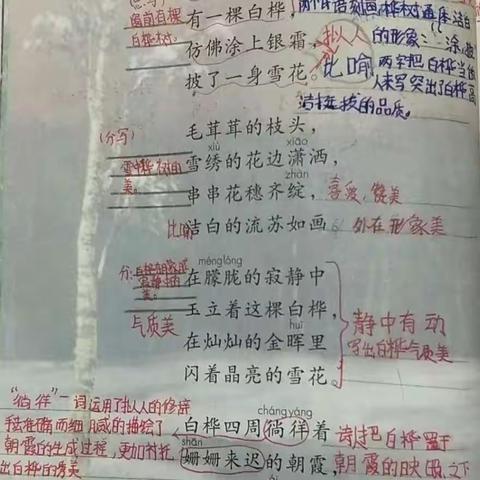 窗前有棵
白桦树。
有一棵白桦,
仿佛涂上银霜,
披了一身雪花。
拟人
的形象:
比喻
两字把白桦当做
人来写突出了白桦高
洁挺拔的品质。
(分写)
毛茸茸的枝头,
雪中桦树的
美。
xiù xiāo
雪绣的花边潇洒,
zhàn
串串花穗齐绽,
喜爱、赞美
比喻
洁白的流苏如画
外在形象美
分:
méng lóng
在朦胧的寂静中
玉立着这棵白桦,
气质美
huī
在灿灿的金晖里
闪着晶亮的雪花。
静中有动
写出白桦气质美
“徜徉”一词运用了拟人的修辞
手法准确而细腻的描绘了
朝霞的生成过程,更加衬托
出白桦的秀美
cháng yáng
白桦四周徜徉着
诗人把白桦置于
shān
姗姗来迟的朝霞,
朝霞的映照之下